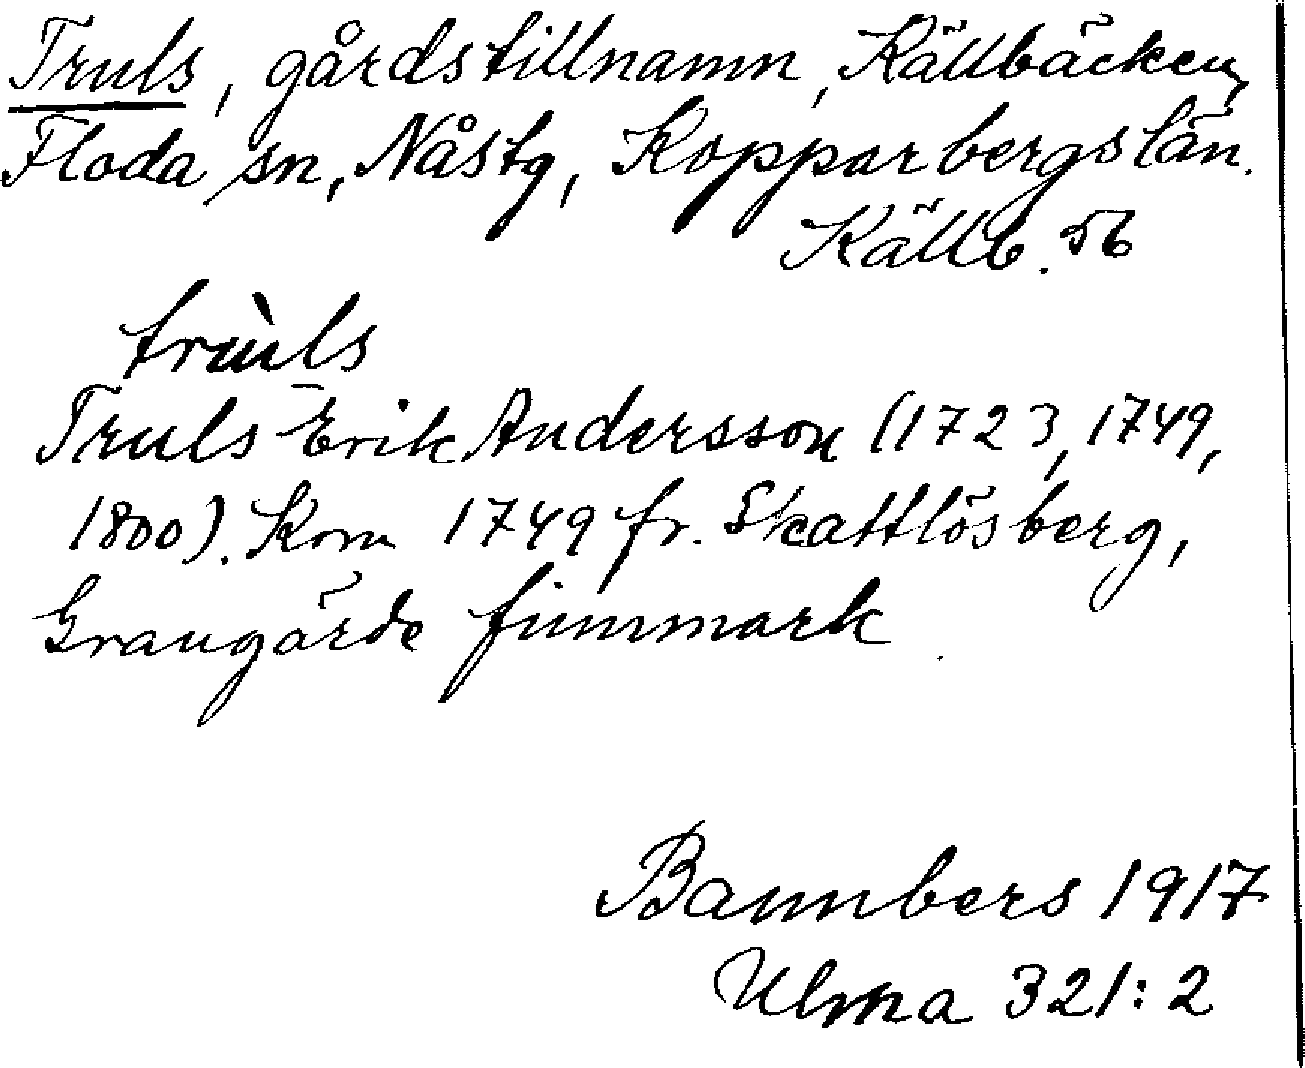 Truls, gårdstillnamn, Källbäcken,
Floda sn, Nåstg, Kopparbergs län.
Källb. 56
trùls
Truls Erik Andersson (1723, 1749,
1800). Kom 1749 fr. Skattlösberg,
Grangärde finnmark.
Bannbers 1917
Ulma 321:2